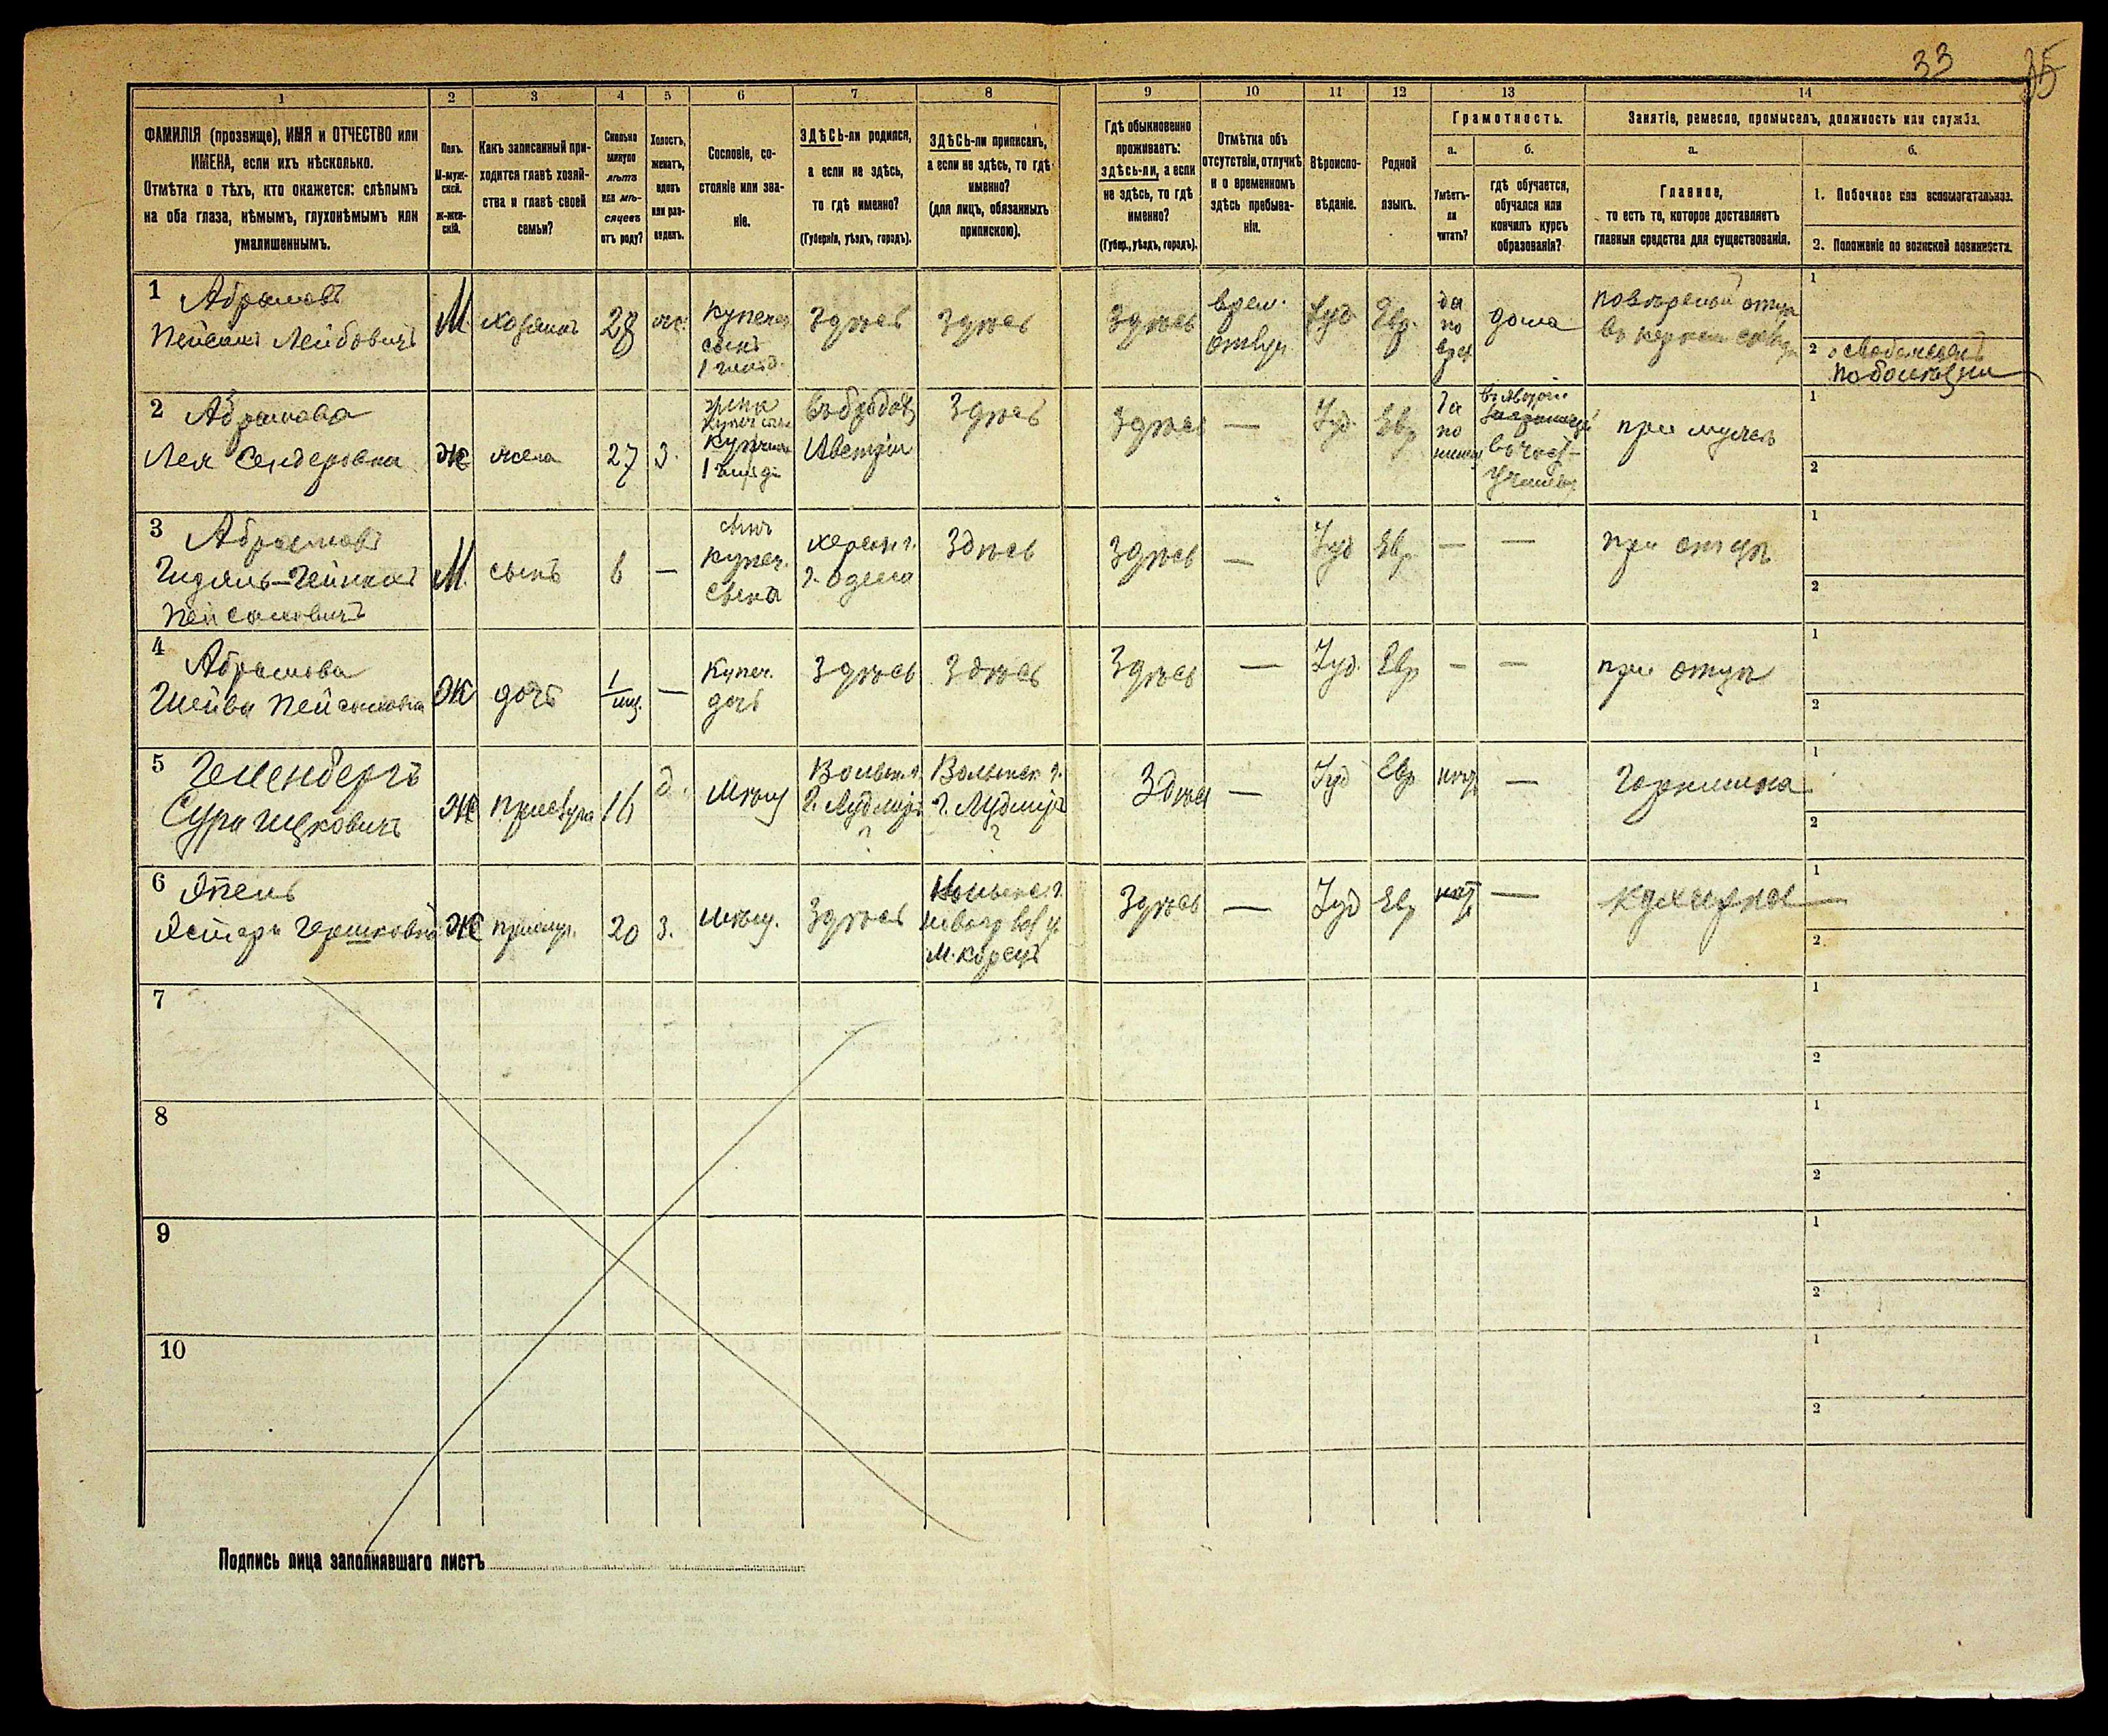 33 35
1 2 3 4 5 6 7 8 9 10 11 12 13 14
ФАМИЛІЯ (прозвище), ИМЯ и ОТЧЕСТВО или
ИМЕНА, если ихъ нѣсколько.
Отмѣтка о тѣхъ, кто окажется: слѣпымъ
на оба глаза, нѣмымъ, глухонѣмымъ или
умалишеннымъ.
Полъ.
М-муж-
ской.
Ж-жен-
скій.
Какъ записанный при-
ходится главѣ хозяй-
ства и главѣ своей
семьи?
Сколько
минуло
лѣтъ
или мѣ-
сяцевъ
отъ роду?
Холостъ,
женатъ,
вдовъ
или раз-
веденъ.
Сословіе, со-
стояніе или зва-
ніе.
ЗДѢСЬ-ли родился,
а если не здѣсь,
то гдѣ именно?
(Губернія, уѣздъ, городъ).
ЗДѢСЬ-ли приписанъ,
а если не здѣсь, то гдѣ
именно?
(для лицъ, обязанныхъ
припискою).
Гдѣ обыкновенно
проживаетъ:
здѣсь-ли, а если
не здѣсь, то гдѣ
именно?
(Губер., уѣздъ, городъ).
Отмѣтка объ
отсутствіи, отлучкѣ
и о временномъ
здѣсь пребыва-
ніи.
Вѣроиспо-
вѣданіе.
Родной
языкъ.
Грамотность.
а.
Умѣетъ-
ли
читать?
б.
гдѣ обучается,
обучался или
кончилъ курсъ
образованія?
Занятіе, ремесло, промыселъ, должность или служба.
а.
Главное,
то есть то, которое доставляетъ
главныя средства для существованія.
б.
1. Побочное или вспомогательное.
2. Положеніе по воинской повинности.
1 Абрамовъ
Пейсахъ Лейбовичъ
М. хозяинъ 28 ж.
купеч.
сынъ
1 гильд.
Здѣсь Здѣсь Здѣсь
врем.
отлуч.
Іуд. Евр.
да
по
евр.
дома
повѣренный отца
1
2
2 Абрамова
Лея Сендеровна
Ж жена 27 З.
жена
купеч.
1 гильд.
въ Бродахъ
Австріи
Здѣсь Здѣсь — Іуд. Евр.
да
по
въ Австріи
при мужѣ
1
2
3 Абрамовъ
Пейсаховичъ
М. сынъ 6 —
сынъ
купеч.
сына
херсон. г.
г. Одесса
Здѣсь Здѣсь — Іуд Евр. — —
при отцѣ
1
2
4 Абрамова
Шейва Пейсаховна
Ж дочь 1/мѣс. —
купеч.
дочь
Здѣсь Здѣсь Здѣсь — Іуд. Евр — —
при отцѣ
1
2
5 Гелленбергъ
Сура Ицковичъ
Ж прислуга 16 д. мѣщ
Волынск. г.
?
Волынск. г.
?
Здѣсь — Іуд Евр нѣтъ —
Горнишна
1
2
6
Гершковна
Ж прислуг. 20 З. мѣщ. Здѣсь
Волынск. г.
м. Корецъ
Здѣсь — Іуд Евр нѣтъ —
кухарка
1
2
7
1
2
8
1
2
9
1
2
10
1
2
Подпись лица заполнявшаго листъ